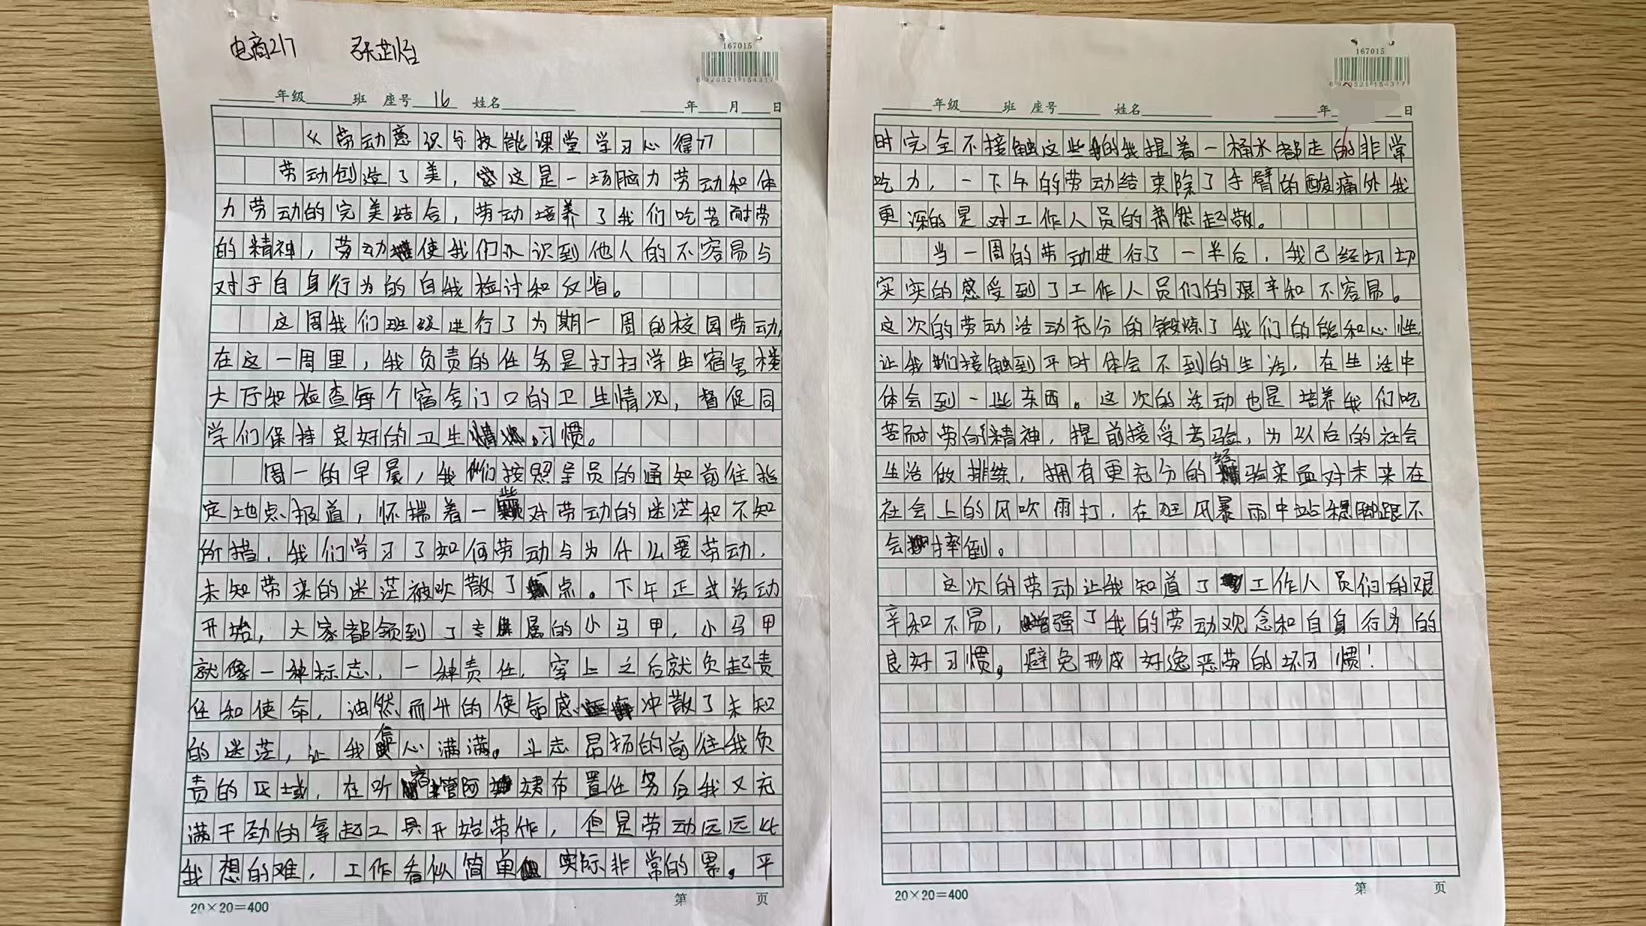 电商217
167015
年级 班 座号 16 姓名 年 月 日
《劳动意识与技能课堂学习心得》
劳动创造了美，这是一场脑力劳动和体
力劳动的完美结合，劳动培养了我们吃苦耐劳
的精神，劳动使我们认识到他人的不容易与
对于自身行为的自我检讨和反省。
这周我们班级进行了为期一周的校园劳动，
在这一周里，我负责的任务是打扫学生宿舍楼
大厅和检查每个宿舍门口的卫生情况，督促同
学们保持良好的卫生习惯。
周一的早晨，我们按照的通知前往指
定地点报道，怀揣着一些对劳动的迷茫和不知
所措，我们学习了如何劳动与为什么要劳动，
未知带来的迷茫被吹散了点。下午正式活动
开始，大家都领到了专属的小马甲，小马甲
就像一种标志，一种责任，穿上之后就负起责
任和使命，油然而升的使命感冲散了未知
的迷茫，让我信心满满。斗志昂扬的前往我负
责的区域，在听宿管阿姨布置任务后我又充
满干劲的拿起工具开始劳作，但是劳动远远比
我想的难，工作看似简单实际非常的累。平
20×20=400 第 页
167015
年级 班 座号 姓名 年 日
时完全不接触这些的我提着一桶水都走的非常
吃力，一下午的劳动结束除了手臂的酸痛外我
更深的是对工作人员的肃然起敬。
当一周的劳动进行了一半后，我已经切切
实实的感受到了工作人员们的艰辛和不容易。
这次的劳动活动充分的锻炼了我们的能和心性
让我们接触到平时体会不到的生活，在生活中
体会到一些东西。这次的活动也是培养我们吃
苦耐劳的精神，提前接受考验，为以后的社会
生活做排练，拥有更充分的经验来面对未来在
社会上的风吹雨打，在狂风暴雨中站稳脚跟不
会摔倒。
这次的劳动让我知道了工作人员们的艰
辛和不易，增强了我的劳动观念和自身行为的
良好习惯。避免形成好逸恶劳的坏习惯！
20×20=400 第 页